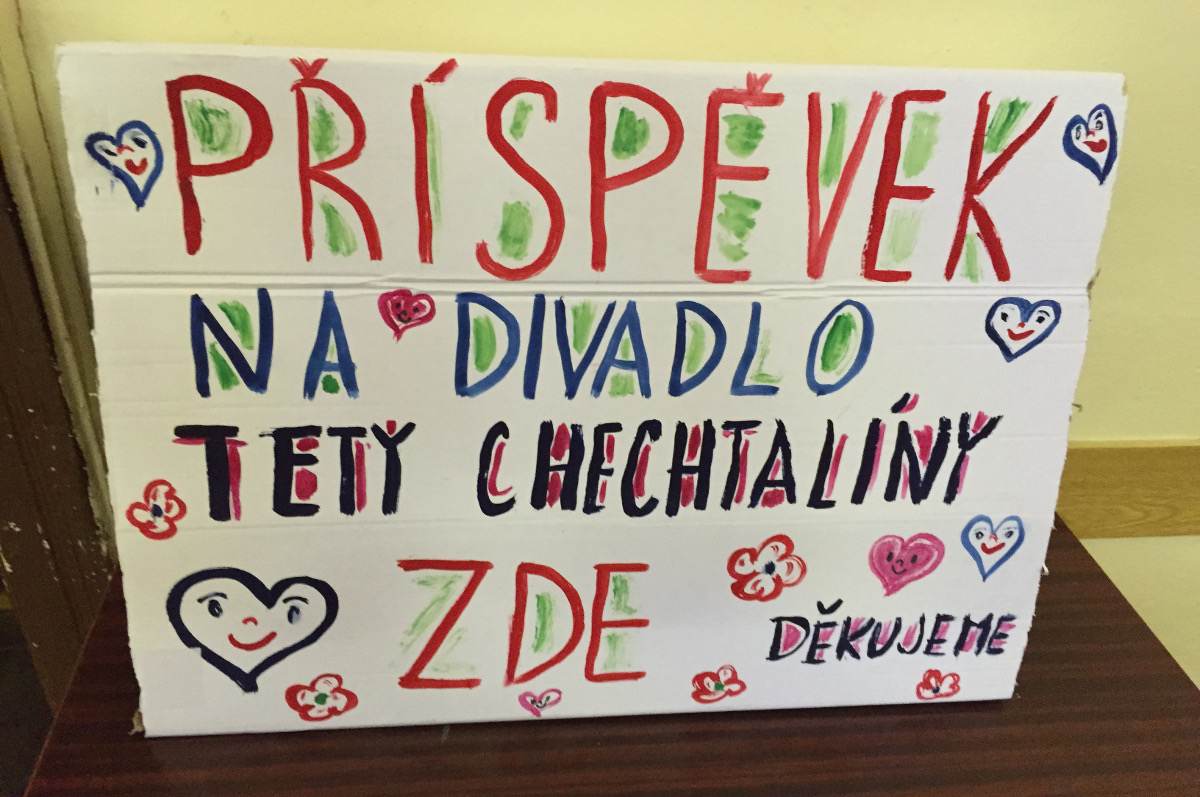 PŘÍSPĚVEK
NA DIVADLO
TETY CHECHTALÍNY
ZDE
DĚKUJEME